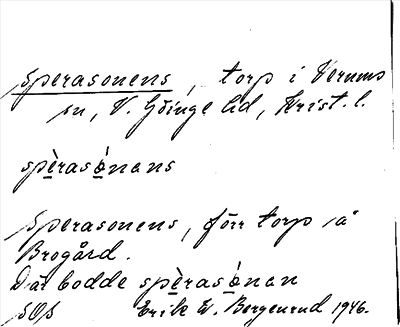 Sperasonens, torp i Verums
sn, V. Göinge hd, Krist. l.
spèrasónans
Sperasonens, förr torp på
Brogård.
Där bodde spèrasónan
SOs Erik W. Bergenrud 1946.